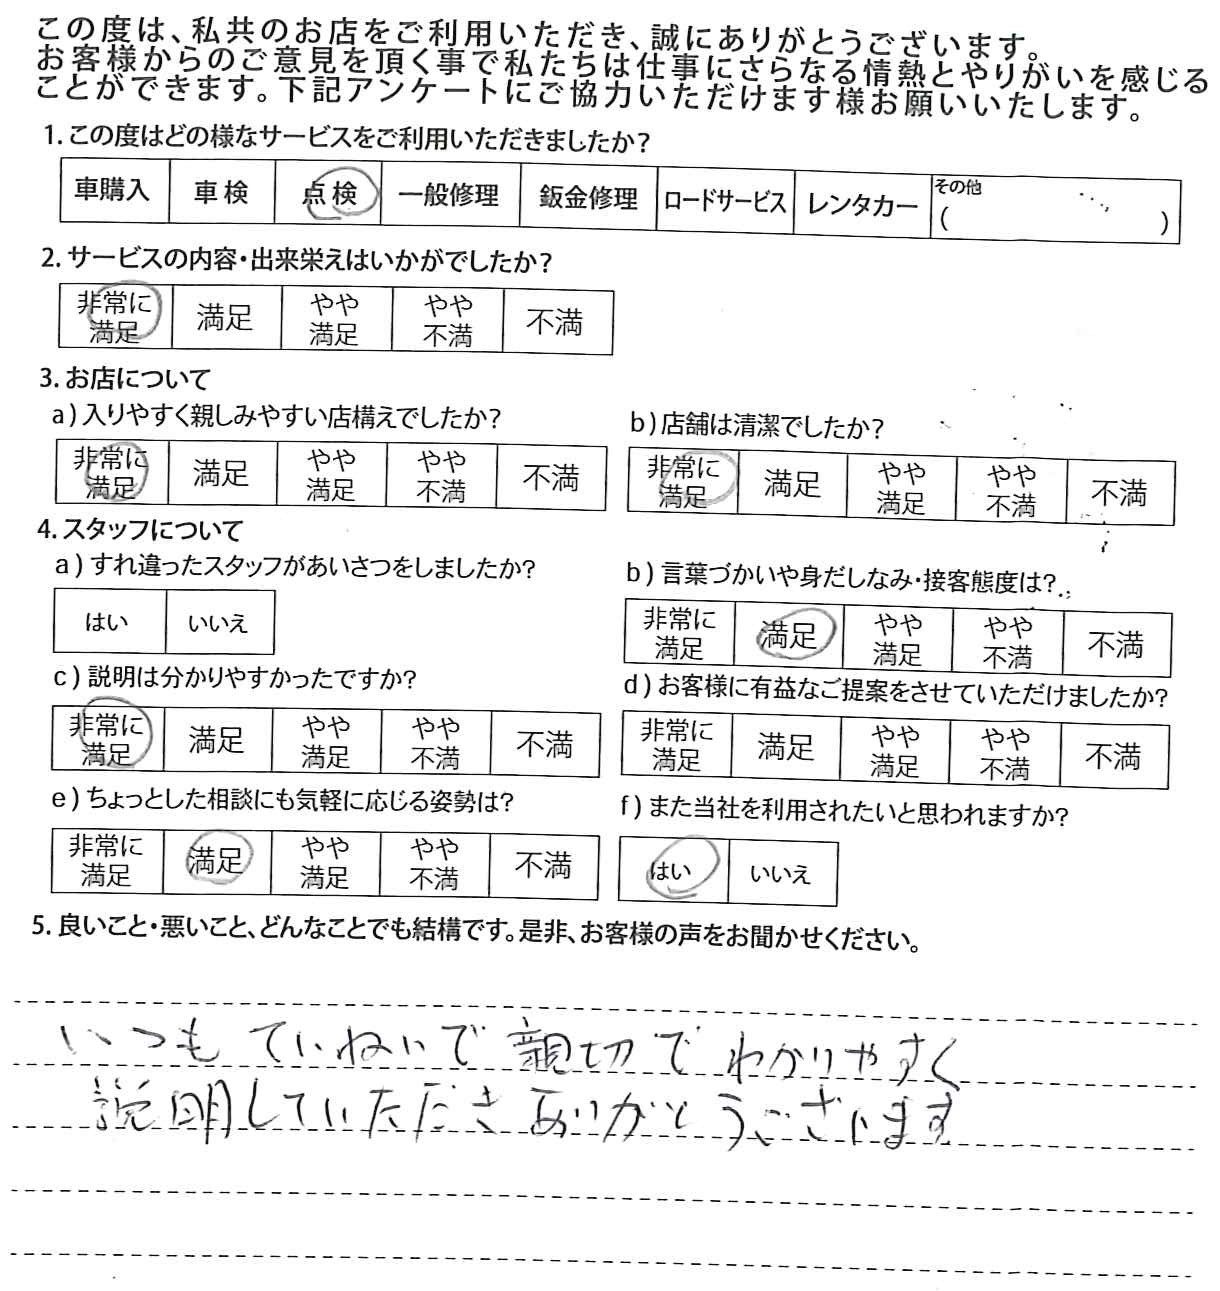 この度は、私共のお店をご利用いただき、誠にありがとうございます。
お客様からのご意見を頂く事で私たちは仕事にさらなる情熱とやりがいを感じる
ことができます。下記アンケートにご協力いただけます様お願いいたします。
1. この度はどの様なサービスをご利用いただきましたか?
車購入 車検 点検 一般修理 鈑金修理 ロードサービス レンタカー その他 ( )
2. サービスの内容・出来栄えはいかがでしたか?
非常に満足 満足 やや満足 やや不満 不満
3. お店について
a) 入りやすく親しみやすい店構えでしたか?
非常に満足 満足 やや満足 やや不満 不満
b) 店舗は清潔でしたか?
非常に満足 満足 やや満足 やや不満 不満
4. スタッフについて
a) すれ違ったスタッフがあいさつをしましたか?
はい いいえ
b) 言葉づかいや身だしなみ・接客態度は?
非常に満足 満足 やや満足 やや不満 不満
c) 説明は分かりやすかったですか?
非常に満足 満足 やや満足 やや不満 不満
d) お客様に有益なご提案をさせていただけましたか?
非常に満足 満足 やや満足 やや不満 不満
e) ちょっとした相談にも気軽に応じる姿勢は?
非常に満足 満足 やや満足 やや不満 不満
f) また当社を利用されたいと思われますか?
はい いいえ
5. 良いこと・悪いこと、どんなことでも結構です。是非、お客様の声をお聞かせください。
いつも ていねいで 親切で わかりやすく
説明していただき ありがとうございます